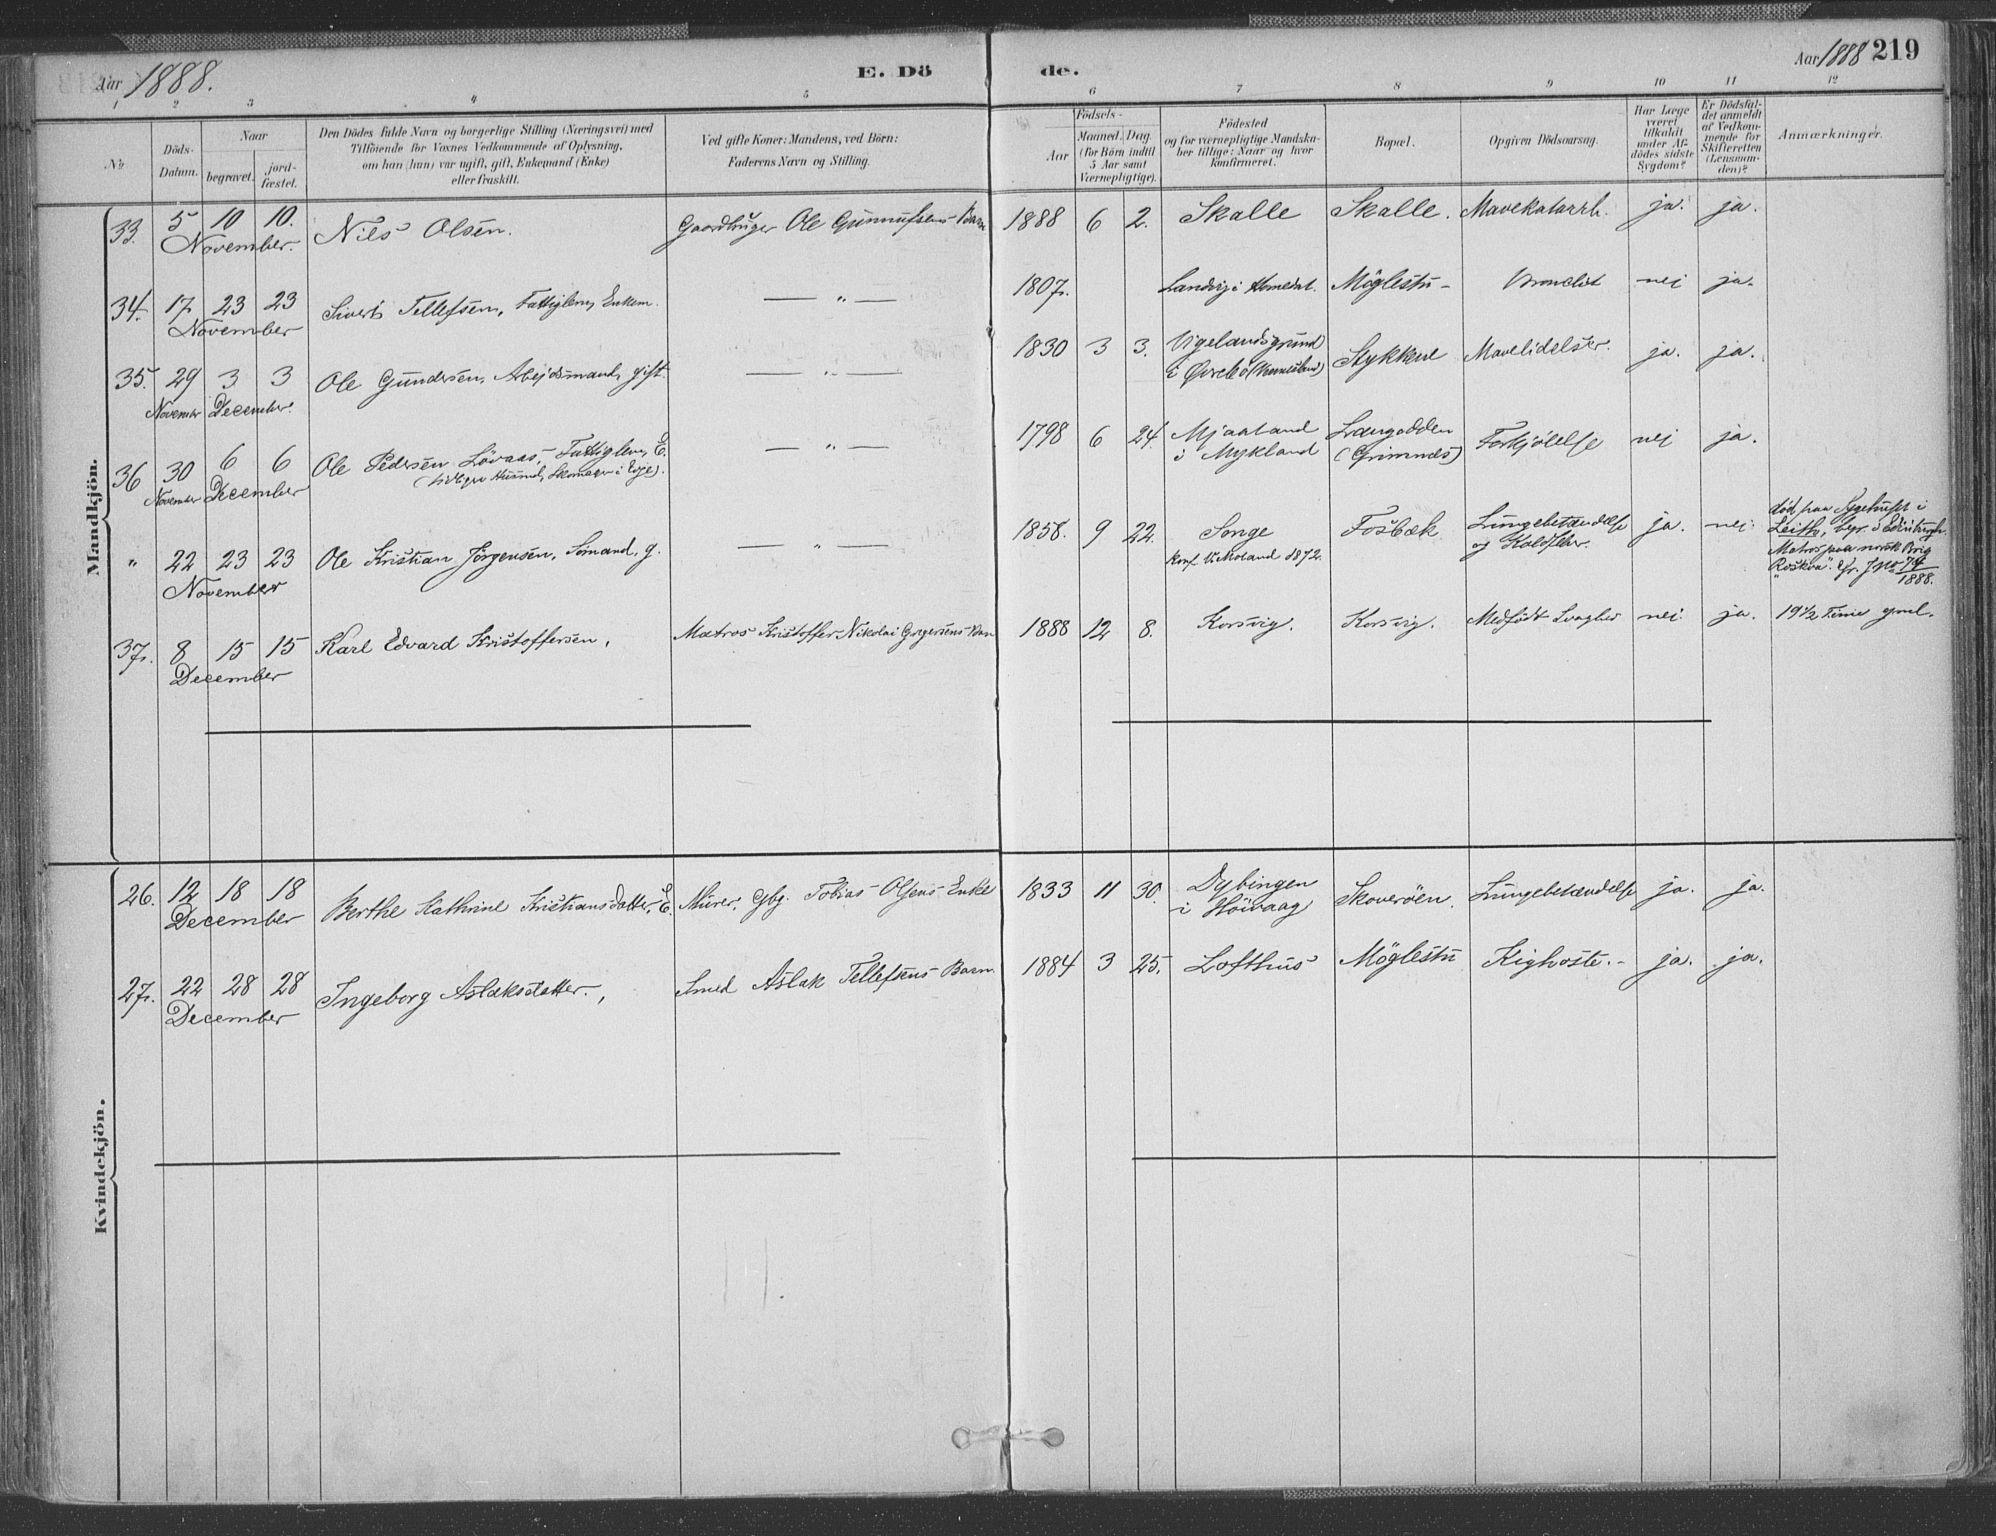 Aar 1888.
E. Dö
de.
Aar 1888 219
1 2 3 4 5 6 7 8 9 10 11 12
No
Döds-
Datum.
Naar
begravet.
jord-
fæstet.
Den Dödes fulde Navn og borgerlige Stilling (Næringsvei) med
Tilföiende for Voxnes Vedkommende af Oplysning,
om han (hun) var ugift, gift, Enkemand (Enke)
eller fraskilt.
Ved gifte Koner: Mandens, ved Börn:
Faderens Navn og Stilling.
Födsels-
Aar
Maaned. Dag.
(for Börn indtil
5 Aar samt
Værnepligtige).
Födested
og for værnepligtige Mandska-
ber tillige: Naar og hvor
konfirmeret.
Bopæl.
Opgiven Dödsaarsag.
Har Læge
været
tilkaldt
under Af-
dödes sidste
Sygdom?
Er Dödsfal-
det anmeldt
af Vedkom-
mende for
Skifteretten
(Lensman-
den)?
Anmærkninger.
Mandkjön.
33. 5 10 10. Nils Olsen. Gaardbruger Ole Gunnufsens Barn 1888 6 2. Skalle Skalle. Mavekatarrh. ja. ja.
November.
34. 17 23 23 Sivert Tellefsen, Fattiglem, Enkem. — " — 1807. Landvig i Homedal. Möglestu - Bronchit nej ja.
November
35. 29 3 3 Ole Gundersen, Arbejdsmand, gift. — " — 1830 3 3. Vigelandsgrund Stykkene Mavelidelser. ja. ja.
i Øvrebö (Vennesland)
November December.
36 30 6 6 Ole Pedersen Lövaas, Fattiglem, E. — " — 1798 6 24. Mjaaland Langodden Forkjölelse nej ja.
(tidligere Husmd, Skomager i Evje). i Mykland (Grimnes)
November December
" 22 23 23 Ole Kristian Jörgensen, Sömand, g. — " — 1858. 9 22. Songe Fosbæk Lungebetændelse ja. nej.
November
Konf. V. Moland 1872. og Koldfeber.
död paa Sygehuset i
Leith, begr. i Edinburgh.
Matros paa norsk Brig
"Roskva". Cfr. J No 74/1888.
37. 8 15 15 Karl Edvard Kristoffersen, Matros Kristoffer Nikolai Gregersens Barn 1888 12 8. Korsvig. Korsvig. Medfödt Svaghed nej. ja. 19 1/2 Time gml.
December
Kvindekjön.
26. 12 18 18 Berthe Kathrine Kristiansdatter, E. Murer, Gbg. Tobias Olsens Enke 1833 11 30. Dybingen Skoveröen. Lungebetændelse ja. ja.
December
i Höivaag
27. 22 28 28 Ingeborg Aslaksdatter., Smed Aslak Tellefsens Barn. 1884 3 25. Lofthus Möglestu Kighoste. - ja. ja.
December